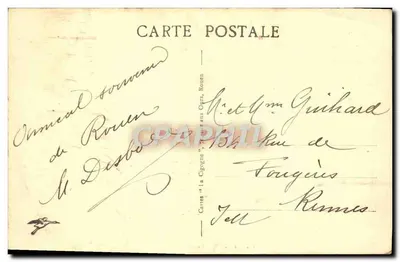 CARTE POSTALE
Amical souvenir
de Rouen
M. Desbo
Cartes "La Cigogne"
Rouen
M. et Mme Guilhard
134 Rue de
Fougères
Rennes
I et V
CPAPHIL